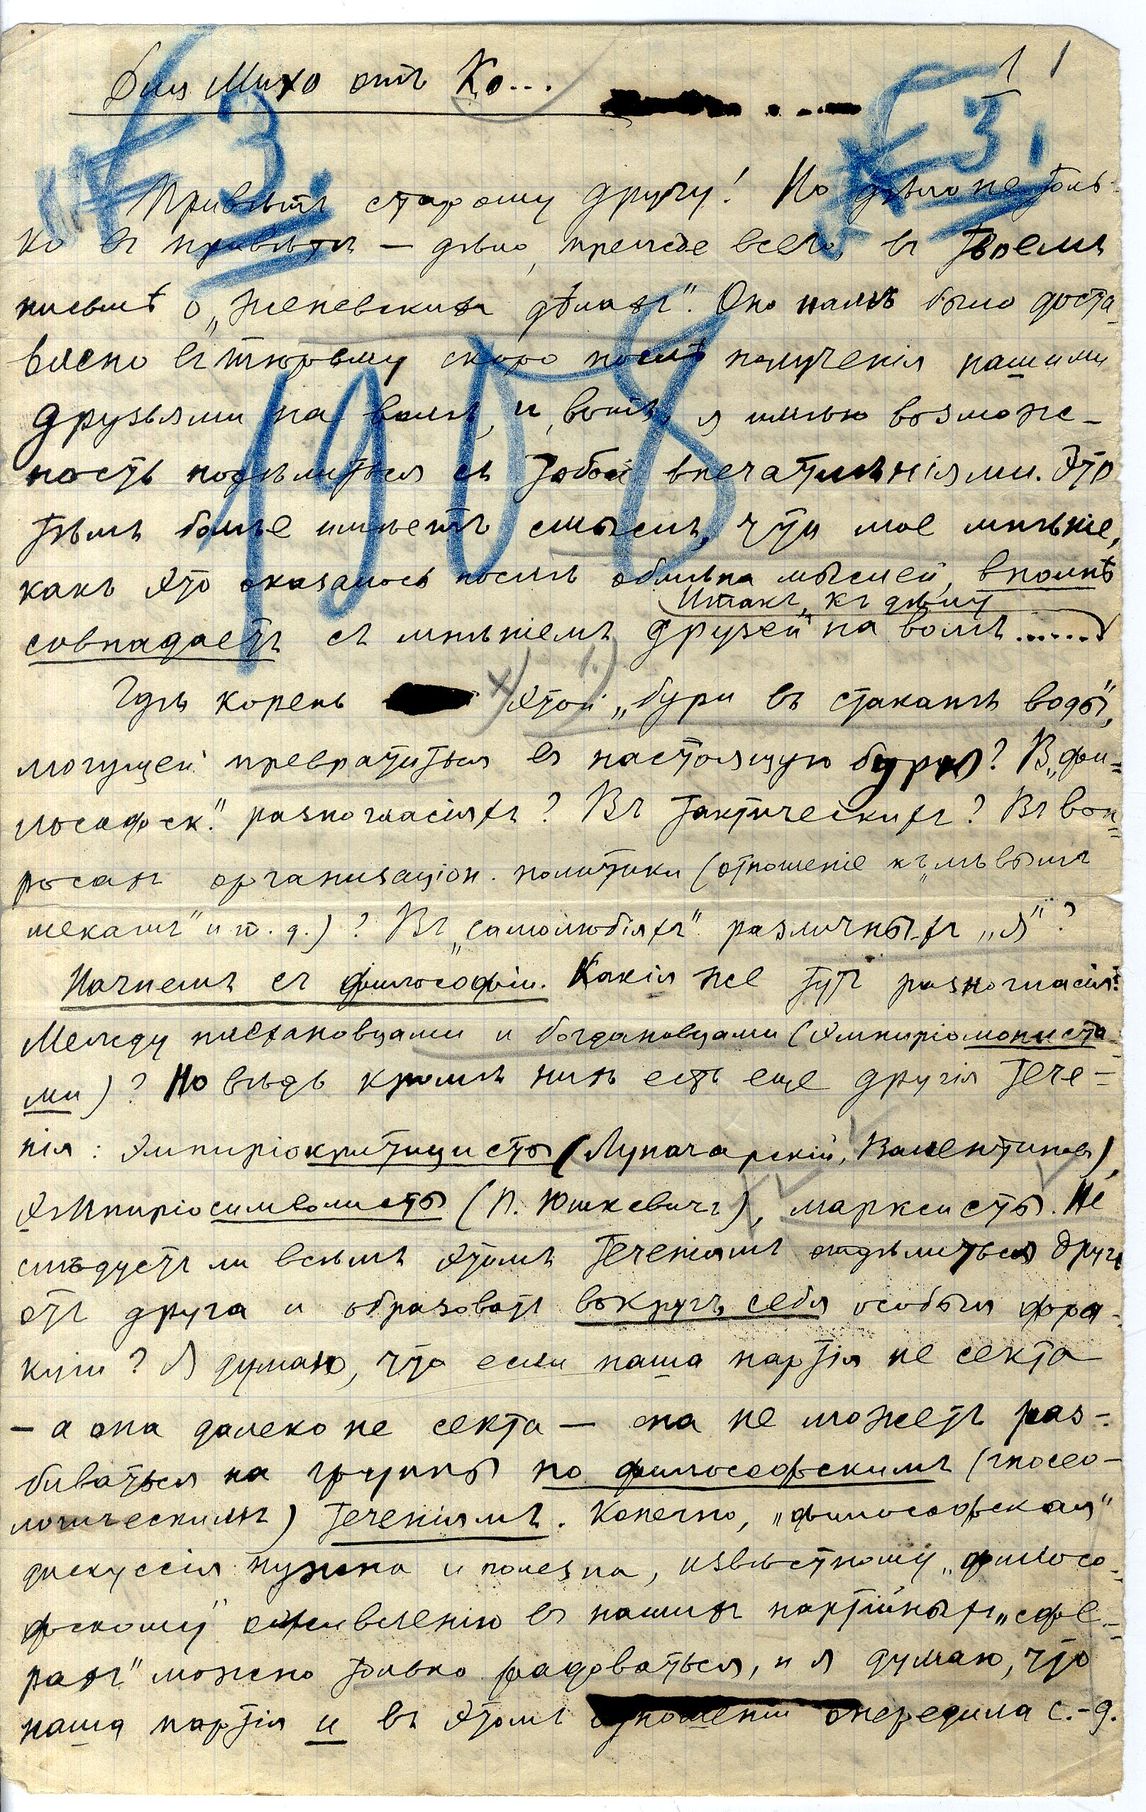 Для Михо отъ Ко...
1 1
3.
3.
Привѣтъ старому другу! Но дѣло не толь-
ко въ привѣтѣ — дѣло, прежде всего въ твоемъ
письмѣ о „женевскихъ дѣлахъ“. Оно намъ было доста-
влено въ тюрьму скоро послѣ полученія нашими
друзьями на волѣ, и, вотъ, я имѣю возмож-
ность подѣлиться съ тобой впечатлѣніями. Это
тѣмъ болѣе имѣетъ смыслъ, что мое мнѣніе,
какъ это оказалось послѣ обмѣна мыслей, вполнѣ
Итакъ, къ дѣлу
совпадаетъ съ мнѣніемъ друзей на волѣ.......
1908
Гдѣ корень этой „бури въ стаканѣ воды“,
могущей превратиться въ настоящую бурю? В „фи-
лософск.“ разногласіяхъ? Въ тактическихъ? Въ воп-
росахъ организаціон. политики (отношеніе къ „лѣвымъ
мекамъ“ и т. д.)? Въ „самолюбіяхъ“ различныхъ „я“?
Начнемъ съ философіи. Какія же тутъ разногласія?
Между плехановцами и богдановцами (эмпиріомониста-
ми)? Но вѣдь кромѣ нихъ есть еще другія тече-
нія: эмпиріокритицисты (Луначарскій, Валентиновъ),
эмпиріосимволисты (П. Юшкевичъ), марксисты. Не
слѣдуетъ ли всѣмъ этимъ теченіямъ отдѣлиться другъ
отъ друга и образовать вокругъ себя особыя фрак-
кціи? Я думаю, что если наша партія не секта
— а она далеко не секта — она не можетъ раз-
биваться на группы по философскимъ (гносео-
логическимъ) теченіямъ. Конечно, „философская“
дискуссія нужна и полезна, извѣстному „филосо-
фскому“ оживленію въ нашихъ партійныхъ „сфе-
рахъ“ можно только радоваться, и я думаю, что
наша партія и въ этомъ отношеніи опередила с.-д.